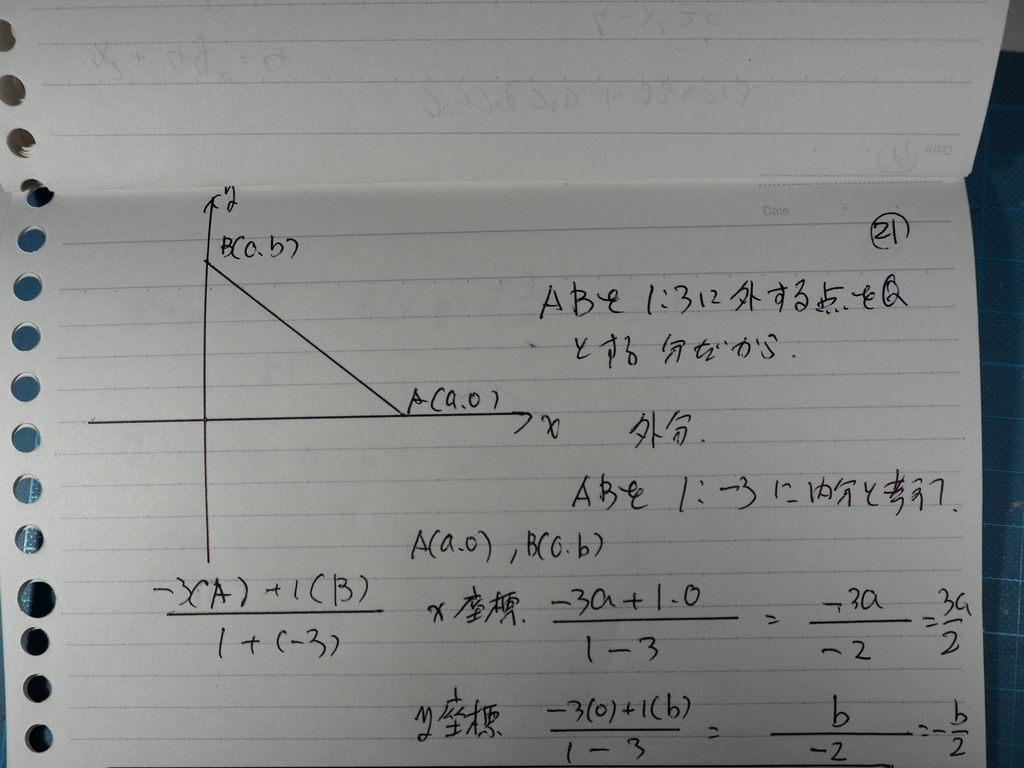 Date
㉑
y
B(0.b)
A(a.0)
x
ABを 1:3に外する点をQ
とする 分だから.
外分.
ABを 1:-3 に内分と考えて.
A(a.0) , B(0.b)
-3(A) + 1(B) / 1 + (-3)
x座標 -3a + 1·0 / 1 - 3 = -3a / -2 = 3a / 2
y座標 -3(0)+1(b) / 1 - 3 = b / -2 = -b / 2